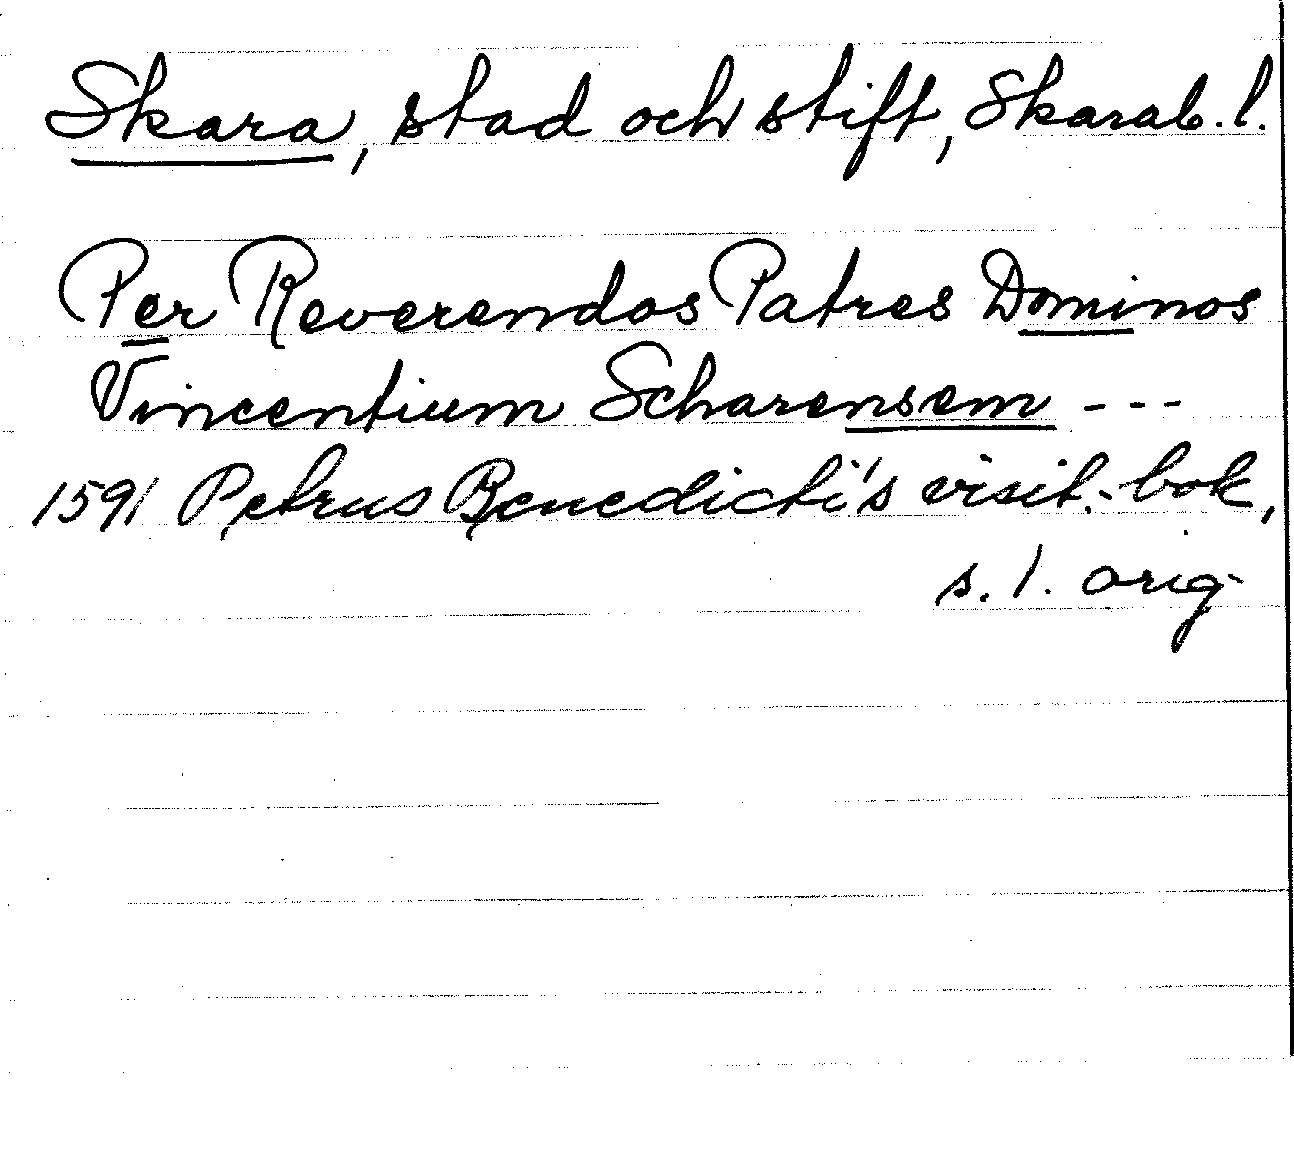 Skara, stad och stift, Skarab. l.
Per Reverendos Patres Dominos
Vincentium Scharensem ---
1591 Petrus Benedicti's visit.-bok,
s. 1. orig